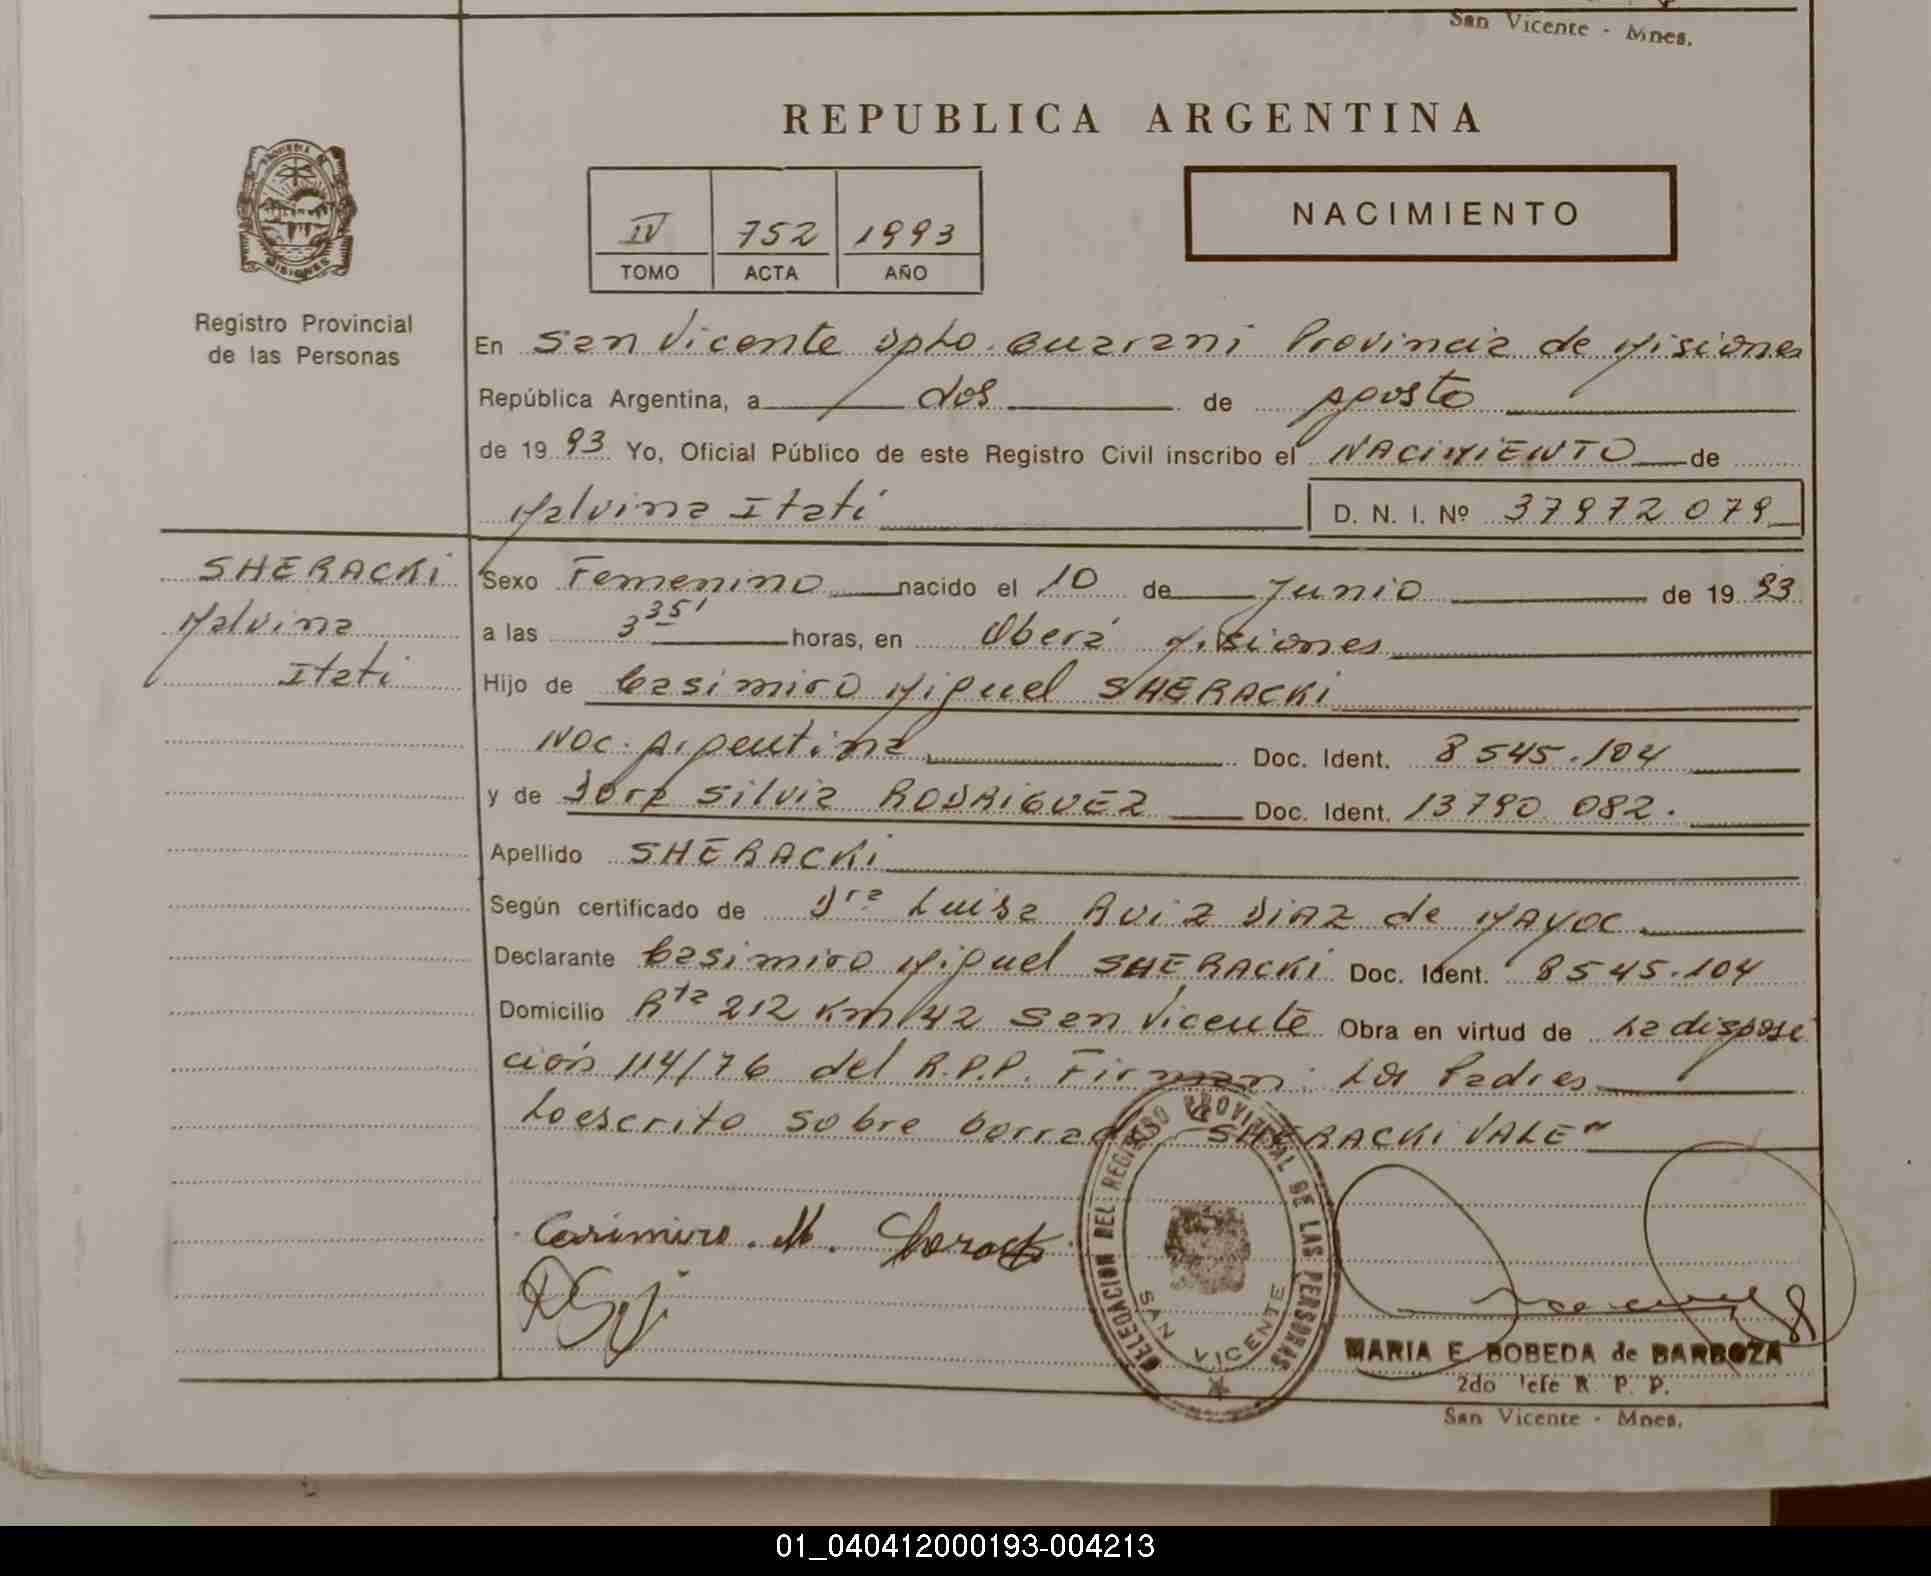 San Vicente - Mnes.
REPUBLICA ARGENTINA
IV 752 1993
TOMO ACTA AÑO
NACIMIENTO
MISIONES
Registro Provincial
de las Personas
En San Vicente Dpto. Guarani Provincia de Misiones
República Argentina, a dos de Agosto
de 19 93 Yo, Oficial Público de este Registro Civil inscribo el NACIMIENTO de
Malvina Itati D. N. I. Nº 37972 079
SHERACKI
Malvina
Itati
Sexo Femenino nacido el 10 de Junio de 19 93
a las 3 35' horas, en Oberá Misiones
Hijo de Casimiro Miguel SHERACKI
Nac. Argentina Doc. Ident. 8545.104
y de Dora Silvia RODRIGUEZ Doc. Ident. 13790 082.
Apellido SHERACKI
Según certificado de Dra Luisa Ruiz DIAZ de MAYOC
Declarante Casimiro Miguel SHERACKI Doc. Ident. 8545.104
Domicilio Rta 212 Km 42 San Vicente Obra en virtud de La disposi
ción 114/76 del R.P.P. Firman: Los Padres
Lo escrito sobre borrado "SHERACKI VALE"
Casimiro. M.
DELEGACION DEL REGISTRO PROVINCIAL DE LAS PERSONAS
SAN VICENTE
MARIA E. BOBEDA de BARBOZA
2do Jefe R. P. P.
San Vicente - Mnes.
01_040412000193-004213